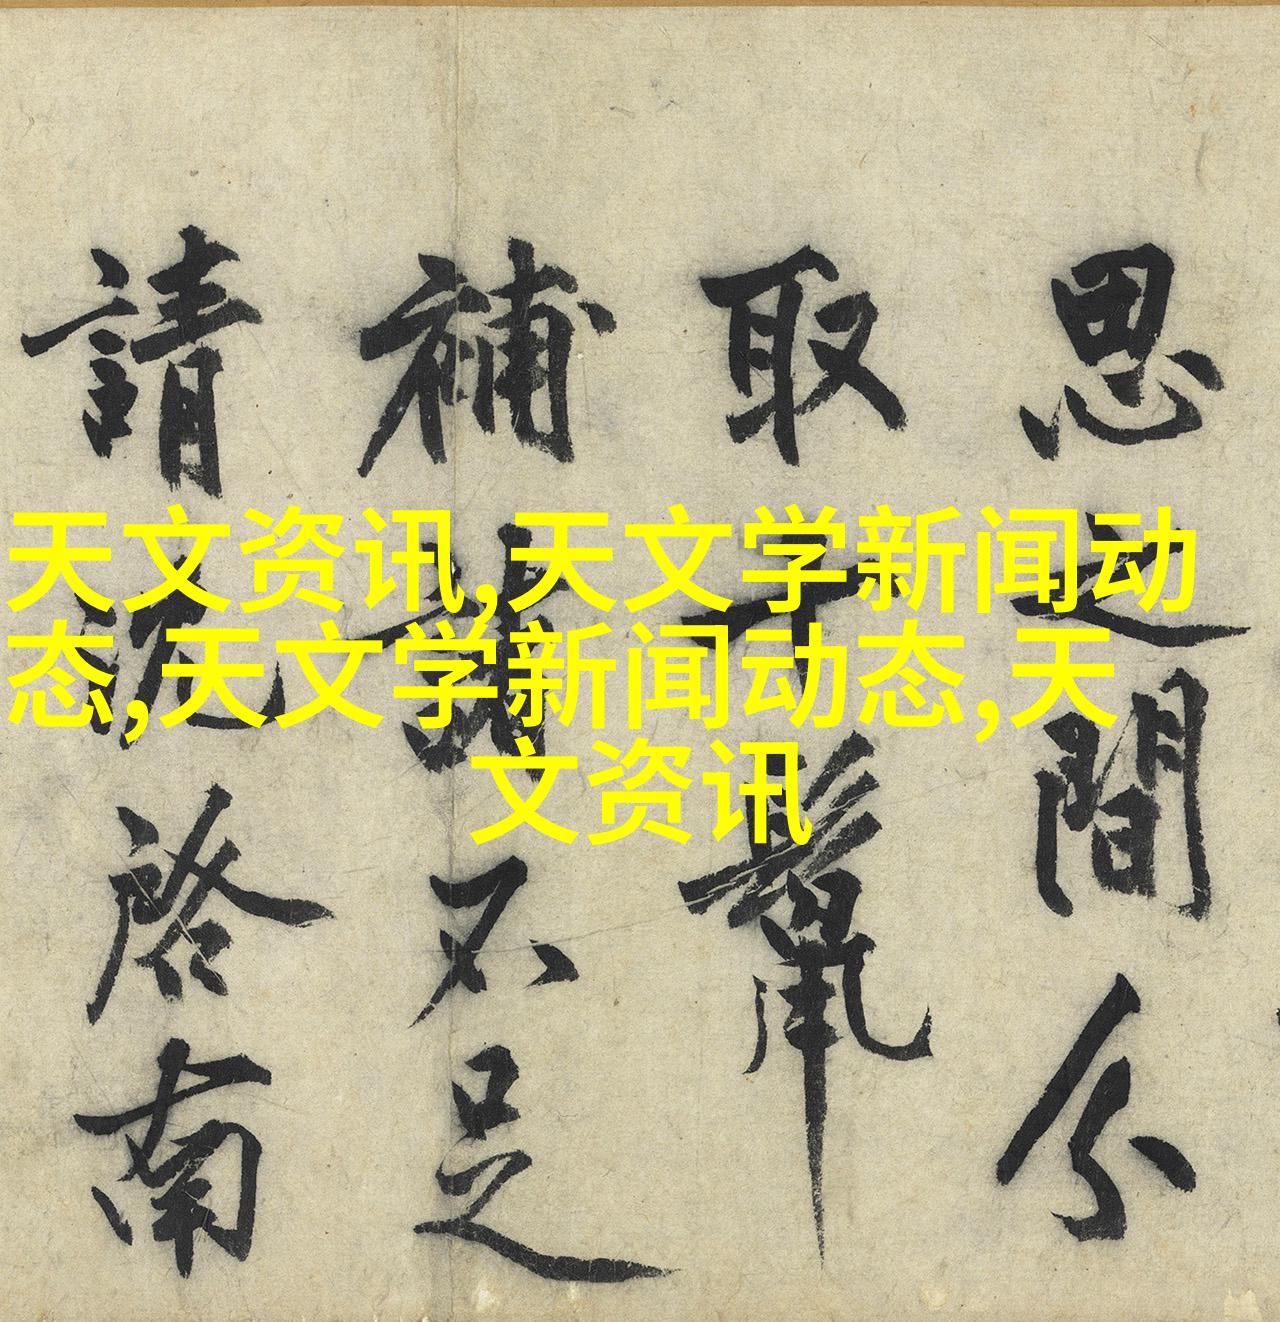 天文资讯,天文学新闻动
态,天文学新闻动态,天
文资讯
思之間分
取十鬣
補諸不足
請沈啓南